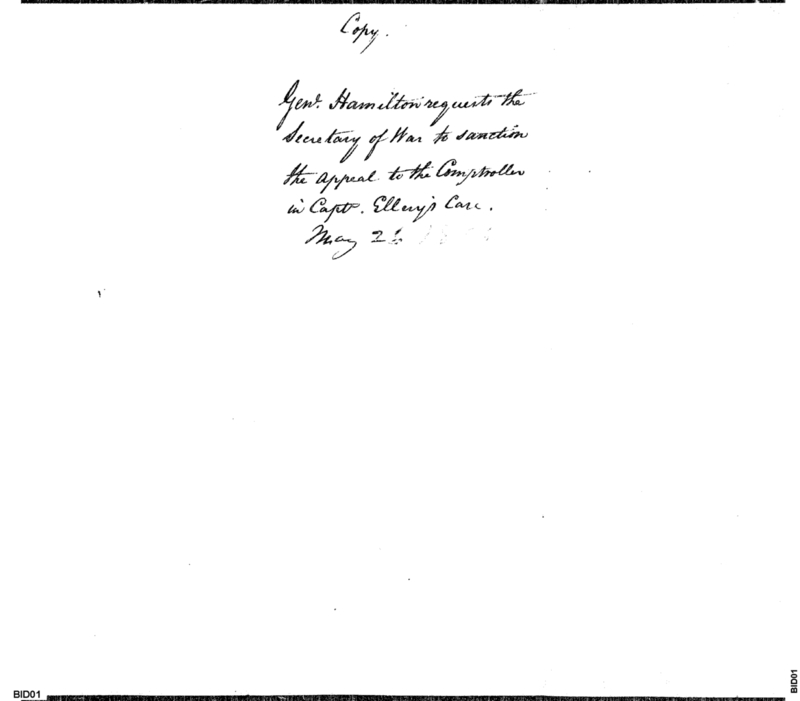 Copy.
Genl. Hamilton requests the
Secretary of War to sanction
the appeal to the Comptroller
in Capt. Ellery's Case.
May
BID01
BID01